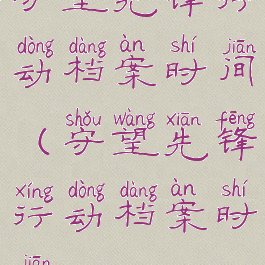 守望先锋行
dòng dàng àn shí jiān
动档案时间
shǒu wàng xiān fēng
(守望先锋
xíng dòng dàng àn shí
行动档案时
jiān